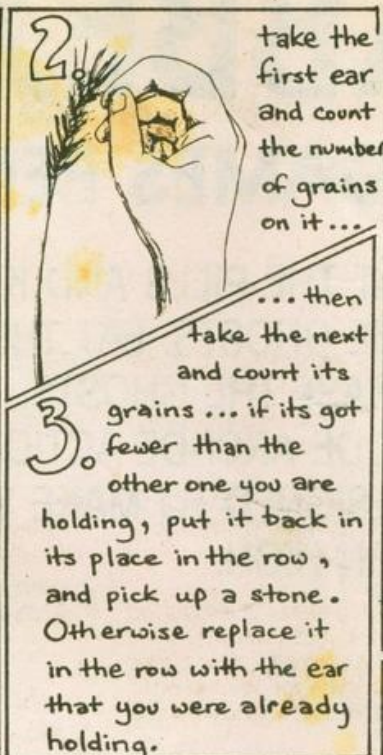 2.
take the
first ear
and count
the number
of grains
on it...
... then
take the next
and count its
3.
grains ... if its got
fewer than the
other one you are
holding, put it back in
its place in the row,
and pick up a stone.
Otherwise replace it
in the row with the ear
that you were already
holding.